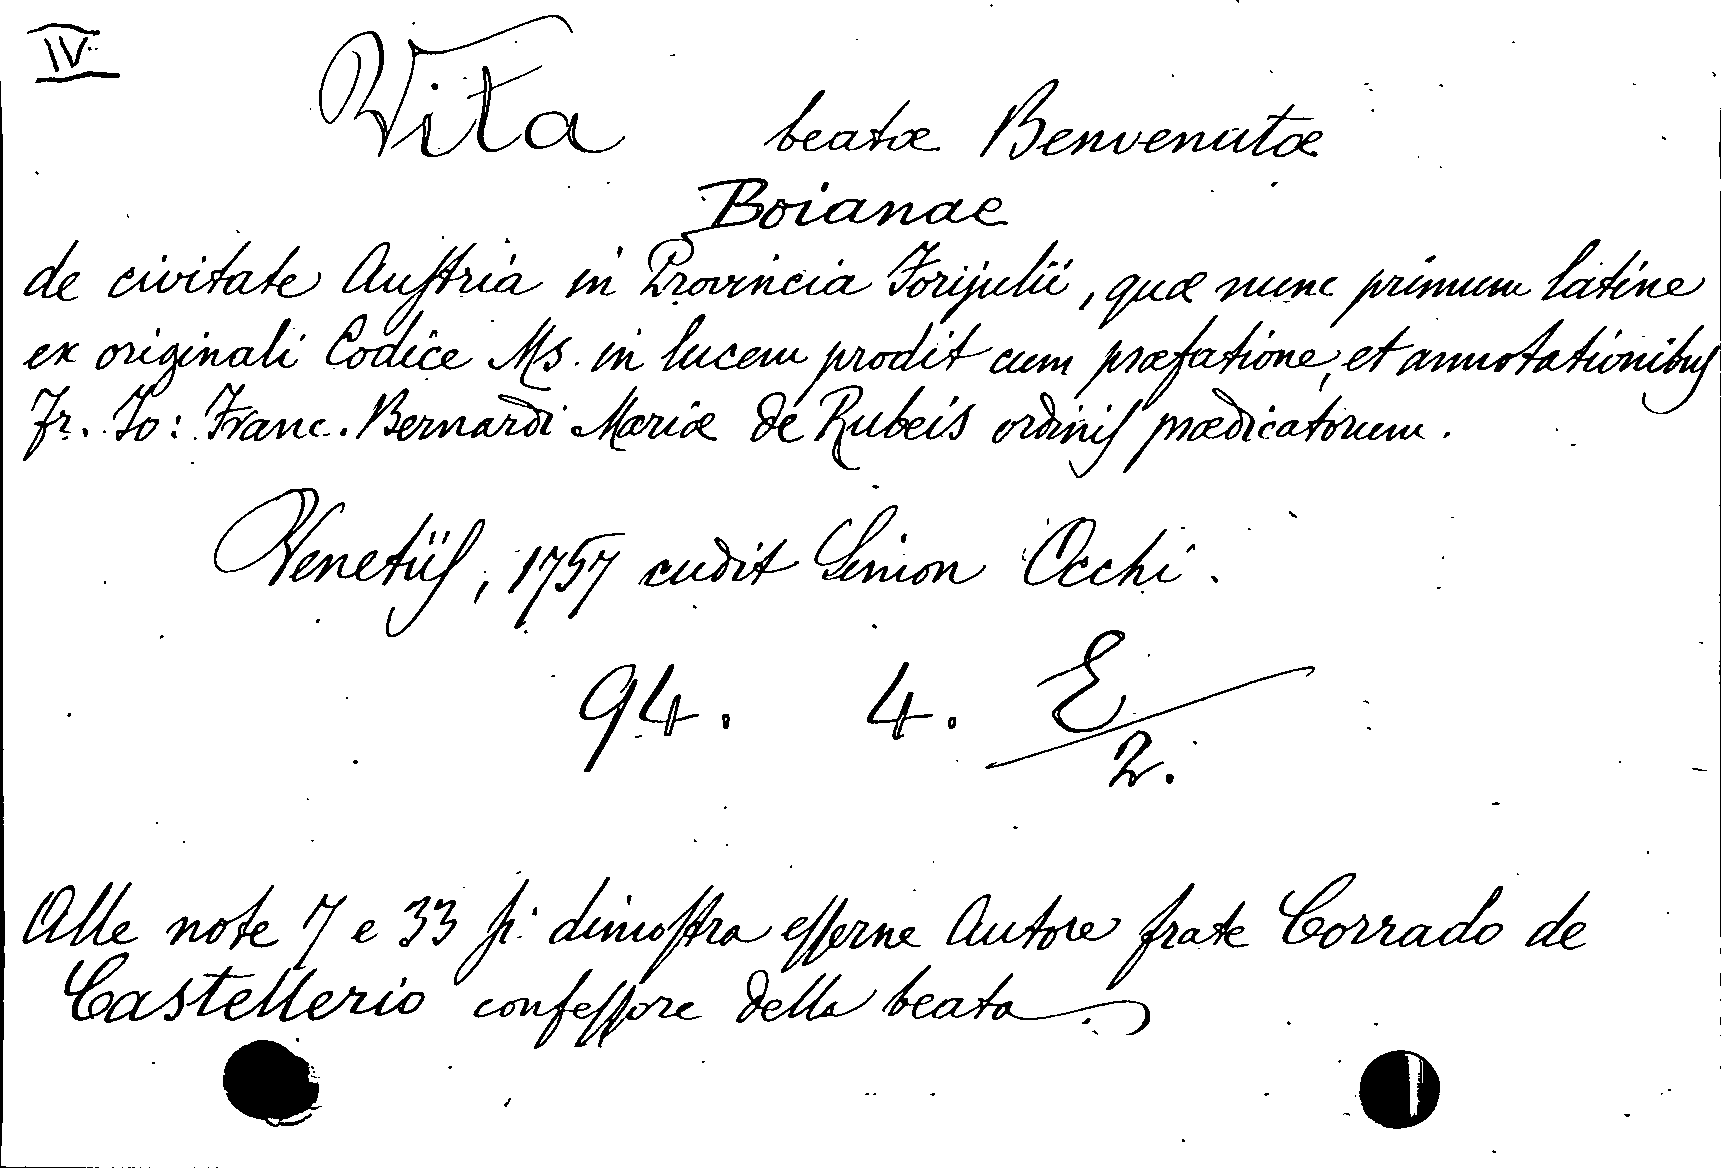 IV
Vita beatæ Benvenutæ
Boianae
de civitate Austria in Provincia Forijulii, quæ nunc primum latine
ex originali Codice Ms. in lucem prodit cum præfatione, et annotationibus
Fr. Jo: Franc. Bernardi Mariæ de Rubeis ordinis prædicatorum.
Venetiis, 1757 cudit Simon Occhi.
94. 4. E/2.
Alle note 7 e 33 si dimostra esserne Autore frate Corrado de
Castellerio confessore della beata.